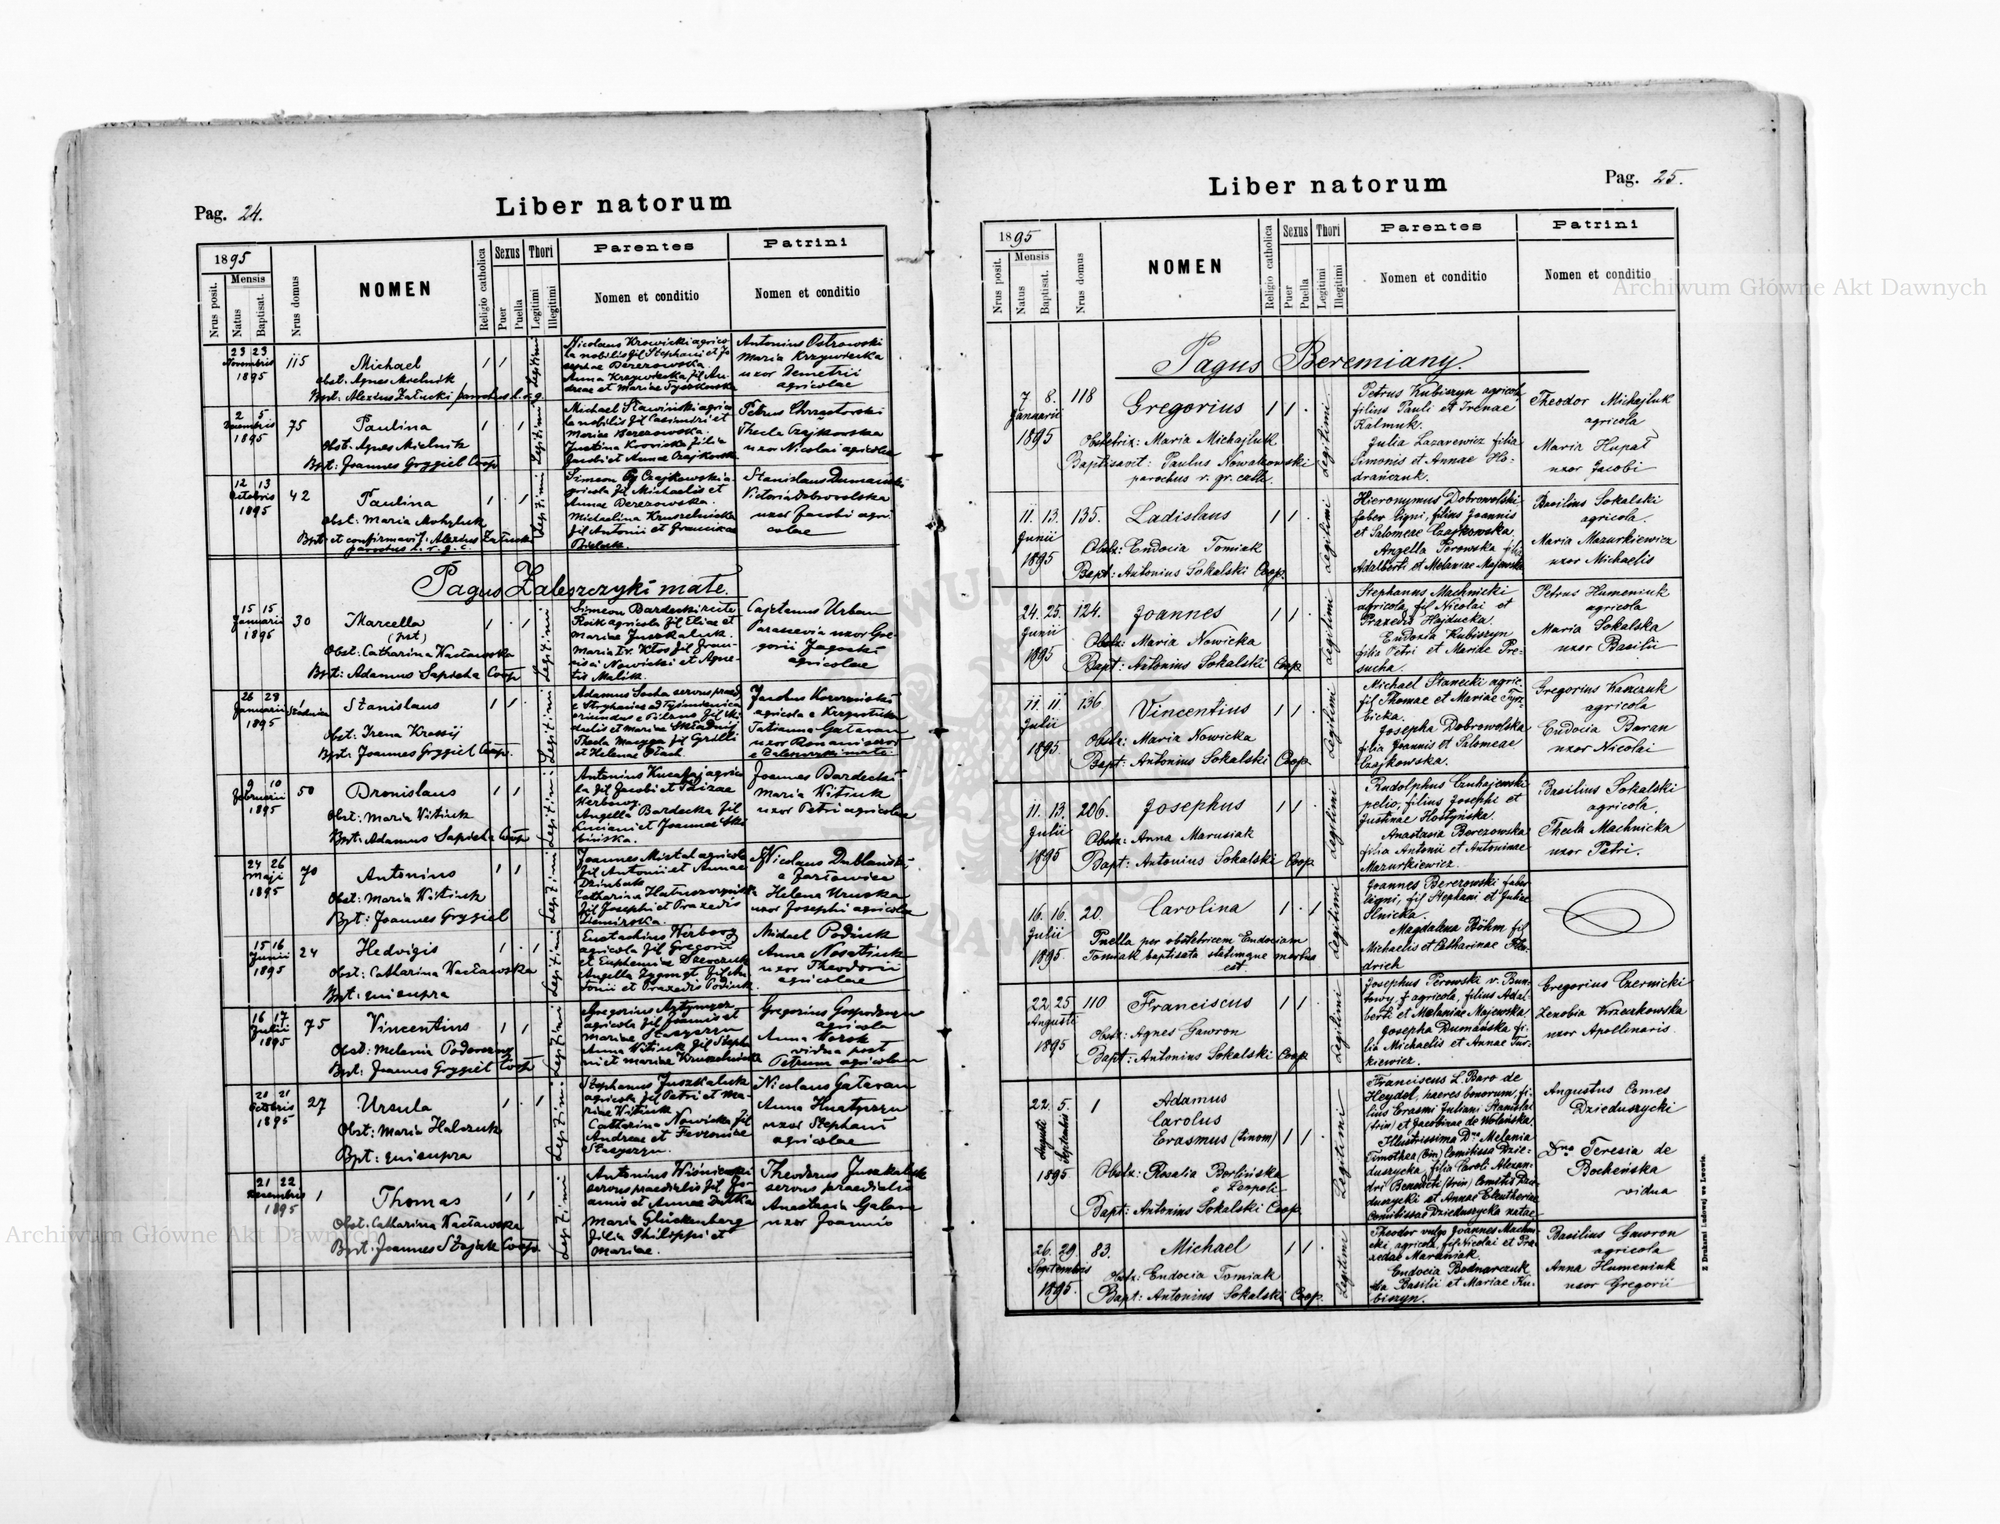 Pag. 24.
Liber natorum
1895
Nrus posit.
Mensis
Natus
Baptisat.
Nrus domus
NOMEN
Religio catholica
Sexus
Puer
Puella
Thori
Legitimi
Illegitimi
Parentes
Nomen et conditio
Patrini
Nomen et conditio
23 23
Novembris
1895
115
Michael
Obst: Agnes Mielnik
Bpt: Alexius Załucki parochus l. r. g.
Legitimi
Nicolaus Krowicki agrico-
la nobilis fil Stephani et Jo
sephae Berezowska
Anna Krzywiecka fil An-
dreae et Mariae Tyczkowska
Antonius Ostrowski
Maria Krzywiecka
uxor Demetrii
agricolae
2 5
Decembris
1895
75
Paulina
Obst: Agnes Mielnik
Bpt: Joannes Grygiel Coop
Legitimi
Michael Sławiński agrico
la nobilis fil Casimiri et
Mariae Berezowska.
Justina Krowicka filia
Jacobi et Annae Czajkowska
Petrus Chrząstowski
Thecla Czajkowska
uxor Nicolai agricolae
12 13
Octobris
1895
42
Paulina
Obst: Maria Mohyluk
Bpt: et confirmavit: Alexius Załucki
parochus l. r. g. c.
Legitimi
Simeon Czajkowski a-
gricola fil Michaelis et
Annae Berezowska.
Michaelina Kruszelnicka
fil Antonii et Franciscae
Bieluk.
Stanislaus Dumański
Victoria Dobrowolska
uxor Jacobi agri
colae
Pagus Zaleszczyki małe.
15 15
Januarii
1895
30
Marcella
Obst: Catharina Wacławska
Bpt: Adamus Sapieha Coop
Legitimi
Simeon Bardecki
agricola fil Eliae et
Mariae Juszkaluk.
Maria Kłos fil Fran-
cisci Nowicki et Agne-
tis Malik.
Cajetanus Urban
Parascevia uxor Gre-
gorii
agricolae
26 28
Januarii
1895
Stanislaus
Obst: Irena
Bpt: Joannes Grygiel Coop.
Legitimi
Adamus Socha servus praed
e
oriundus e Pilzno fil Mi
chaelis et Mariae
Thecla
et Helenae
Jacobus
agricola e
Tatianna Gataran
uxor Romani servi
e Zaleszczyki małe
9 10
Februarii
1895
50
Bronislaus
Obst: Maria Witiuk
Bpt: Adamus Sapieha Coop
Legitimi
Antonius agrico
la fil Jacobi et
Werbowy.
Angella Bardecka fil
Luciani et Joannae
Joannes Bardecki
Maria Witiuk
uxor Petri agricolae
24 26
Maji
1895
70
Antonius
Obst: Maria Witiuk
Bpt: Joannes Grygiel
Legitimi
Joannes Mistal agricola
fil Antonii et Annae
Catharina
fil Josephi et Praxedis
Nicolaus Dublański
e
Helena
uxor Josephi agricolae
15 16
Junii
1895
24
Hedvigis
Obst: Catharina Wacławska
Bpt: qui supra
Legitimi
Eustachius Werbowy
agricola fil Gregorii
et Euphemiae Szewczuk
Angella Zygmunt fil An
tonii et Praxedis Podiuk.
Michael Podiuk
Anna Nosatiuk
uxor Theodorii
agricolae
16 17
Julii
1895
75
Vincentius
Obst: Melania Podoworny
Bpt: Joannes Grygiel Coop
Legitimi
Gregorius
agricola fil Joannis et
Mariae
Anna Witiuk fil Stepha
ni et Mariae Kruszelnicka
Gregorius
agricola
Anna
vidua post
Petrum agricolam
20 21
Octobris
1895
27
Ursula
Obst: Maria Halczuk
Bpt: qui supra
Legitimi
Stephanus Juszkaluk
agricola fil Petri et Ma-
riae Witiuk
Catharina Nowicka fil
Andreae et Fevroniae
Nicolaus Gataran
Anna
uxor Stephani
agricolae
21 22
Decembris
1895
1
Thomas
Obst: Catharina Wacławska
Bpt: Joannes Stojak Coop.
Legitimi
Antonius Wiśniewski
servus praedialis fil Jo-
annis et Annae
Maria Glückenberg
filia Philippi et
Mariae.
Theodorus Juszkaluk
servus praedialis
Anastasia Galara
uxor Joannis
Pag. 25.
Liber natorum
1895
Nrus posit.
Mensis
Natus
Baptisat.
Nrus domus
NOMEN
Religio catholica
Sexus
Puer
Puella
Thori
Legitimi
Illegitimi
Parentes
Nomen et conditio
Patrini
Nomen et conditio
Pagus Beremiany.
7 8.
Januarii
1895
118
Gregorius
Obstetrix: Maria Michajluk
Baptisavit: Paulus Nowakowski
parochus r. gr. cath.
Legitimi
Petrus Kubiszyn agricola
filius Pauli et Irenae
Kalmuk.
Julia Lazarewicz filia
Simonis et Annae Ho-
drańczuk.
Theodor Michajluk
agricola
Maria Hupał
uxor Jacobi
11. 13.
Junii
1895
135.
Ladislaus
Obstx: Eudocia Tomiak
Bapt: Antonius Sokalski Coop.
Legitimi
Hieronymus Dobrowolski
faber ligni, filius Joannis
et Salomeae Czajkowska
Angella Perowska filia
Adalberti et Melaniae Majewska
Basilius Sokalski
agricola.
Maria Mazurkiewicz
uxor Michaelis
24. 25.
Junii
1895
124.
Joannes
Obstx: Maria Nowicka
Bapt: Antonius Sokalski Coop.
Legitimi
Stephanus Machnicki
agricola, fil Nicolai et
Praxedis Hajducka.
Eudoxia Kubiszyn
filia Petri et Mariae Pre-
sucha.
Petrus Humeniuk
agricola
Maria Sokalska
uxor Basilii
11. 11.
Julii
1895.
136
Vincentius
Obstx: Maria Nowicka
Bapt: Antonius Sokalski Coop.
Legitimi
Michael Stanecki agric.
fil Thomae et Mariae Tyr-
bicka.
Josepha Dobrowolska
filia Joannis et Salomeae
Czajkowska.
Gregorius Waszczuk
agricola
Eudocia Baran
uxor Nicolai
11. 13.
Julii
1895
206.
Josephus
Obstx: Anna Marusiak
Bapt: Antonius Sokalski Coop.
Legitimi
Rudolphus Czuhajewski
pelio, filius Josephi et
Justinae Hostyńska.
Anastasia Berezowska
filia Antonii et Antoninae
Mazurkiewicz.
Basilius Sokalski
agricola.
Thecla Machnicka
uxor Petri.
16. 16.
Julii
1895.
20.
Carolina
Puella per obstetricem Eudociam
Tomiak baptisata statimque mortua
est.
Legitimi
Joannes Berezowski faber
ligni, fil Stephani et Juliae
Ilnicka.
Magdalena Böhm fil
Michaelis et Catharinae
drich
22 25
Augusti
1895
110
Franciscus
Obstx: Agnes Gawron
Bapt: Antonius Sokalski Coop
Legitimi
Josephus Perowski v. Bun-
towy, agricola, filius Adal-
berti et Melaniae Majewska.
Josepha Dumańska fi-
lia Michaelis et Annae Tur-
kiewicz.
Gregorius Czernicki
Zenobia Krzeczkowska
uxor Apollinaris.
22. 5.
Augusti
Septembris
1895
1
Adamus
Carolus
Erasmus (trinom)
Obstx: Rosalia Berlińska
Leopoli
Bapt: Antonius Sokalski Coop.
Legitimi
Franciscus L. Baro de
Heydel, haeres bonorum, fi-
lius Erasmi Juliani Stanislai
(trin) et Jacobinae de Wolańska.
Illustrissima Dna Melania
Timothea (bin) Comitissa Dzie-
duszycka, filia Caroli Alexan-
dri Benedicti (trin) Comitis Dzie-
duszycki et Annae Eleutheriae
Comitissae Dzieduszycka natae
Augustus Comes
Dzieduszycki
Dna Teresia de
Bocheńska
vidua
26. 29.
Septembris
1895.
83.
Michael
Obstx: Eudocia Tomiak
Bapt: Antonius Sokalski Coop.
Legitimi
Theodor vulgo Joannes Machni-
cki, agricola, fil Nicolai et Pra-
xedae Maruniak.
Eudocia Bodnarczuk
fila Basilii et Mariae Ku-
biszyn.
Basilius Gawron
agricola
Anna Humeniuk
uxor Gregorii
Z Drukarni Ludowej we Lwowie.
Archiwum Główne Akt Dawnych
Archiwum Główne Akt Dawnych